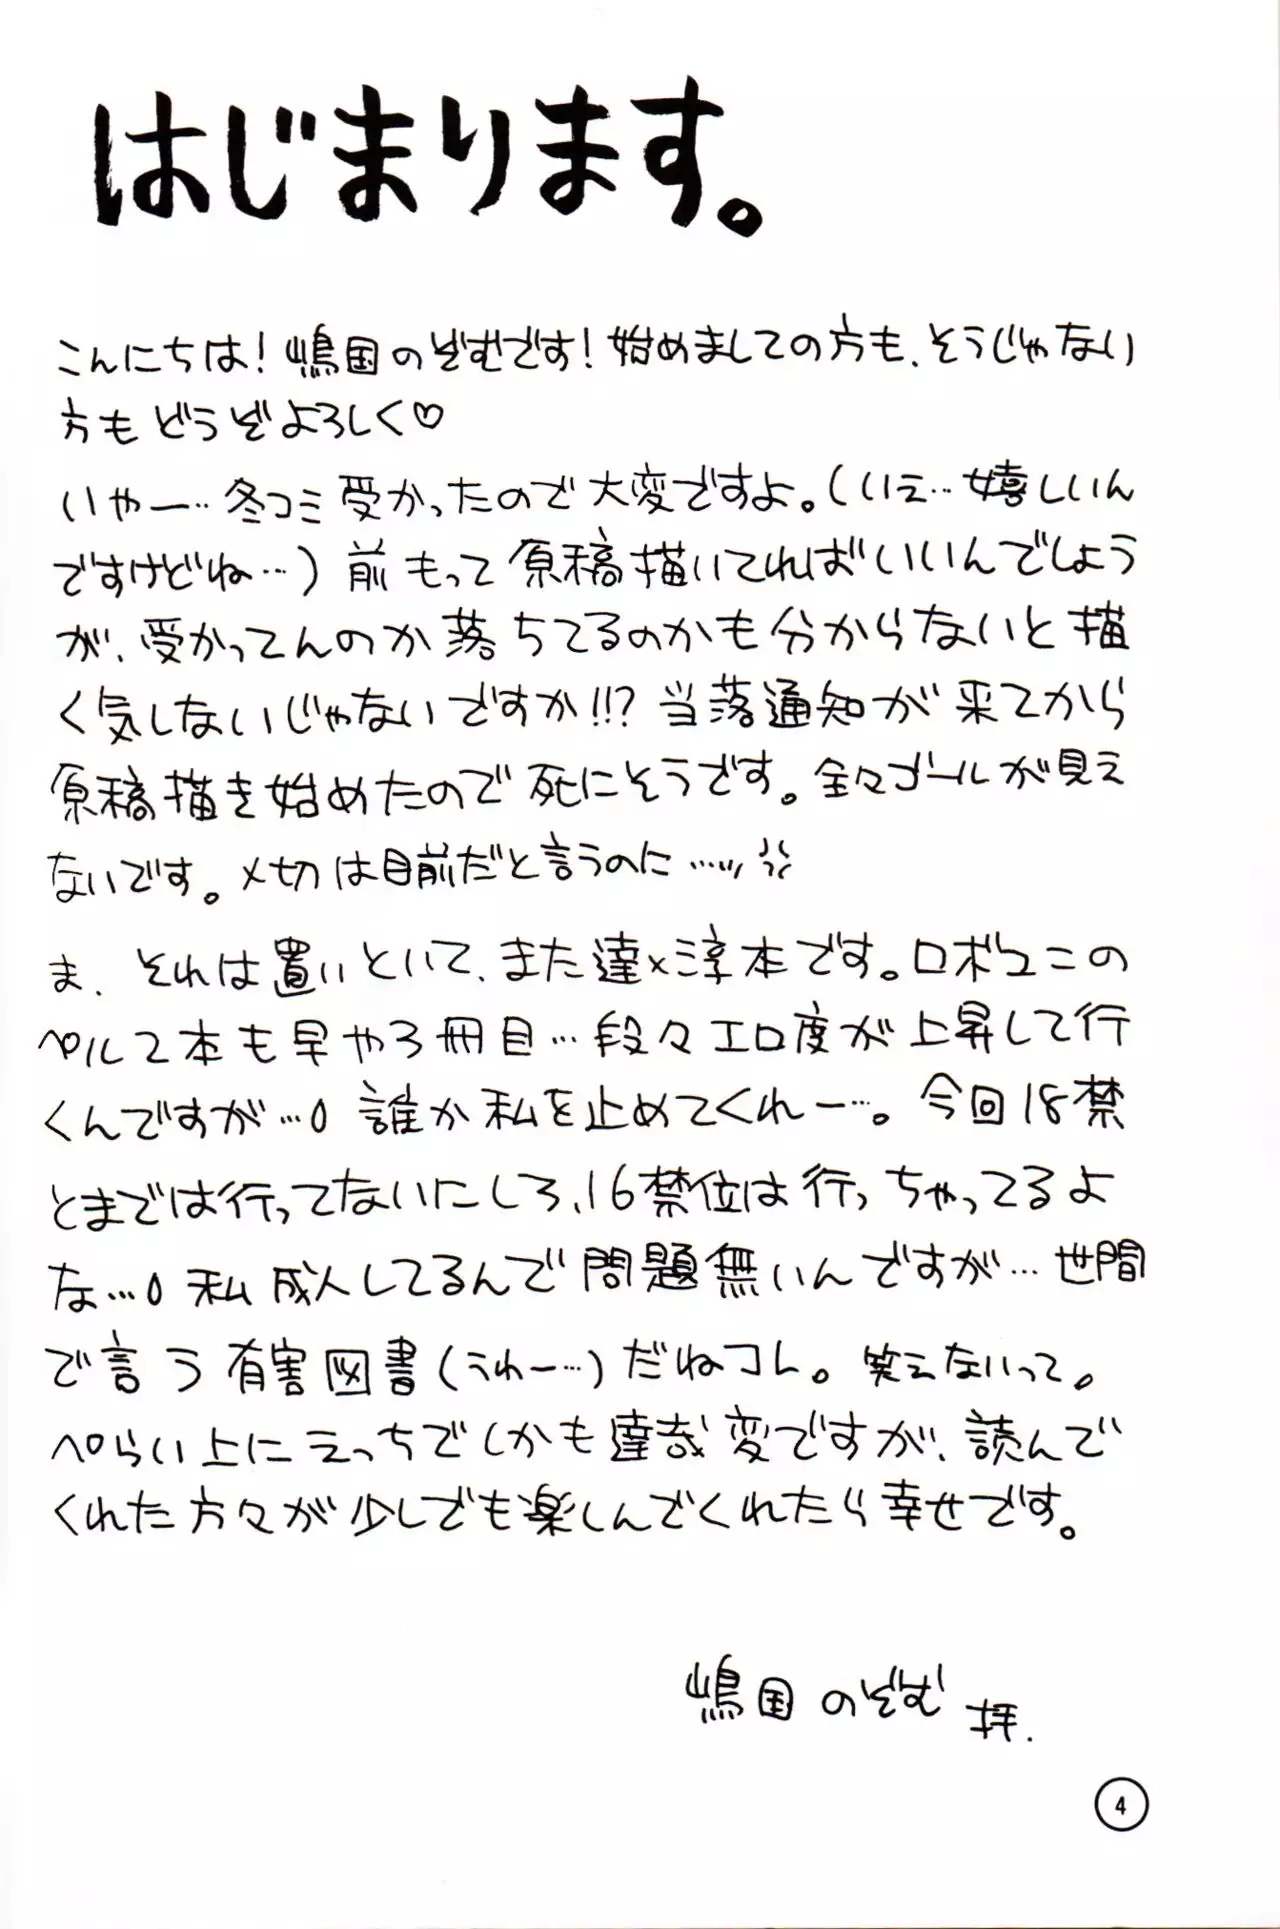 はじまります。
こんにちは！嶋国のぞむです！始めましての方も、そうじゃない
方もどうぞよろしく♡
いやー…冬コミ受かったので大変ですよ。（いえ…嬉しいん
ですけどね…）前もって原稿描いてればいいんでしょう
が、受かってんのか落ちてるのかも分からないと描
く気しないじゃないですか!!?当落通知が来てから
原稿描き始めたので死にそうです。全々ゴールが見え
ないです。〆切は目前だと言うのに……
ま、それは置いといて、また達×淳本です。ロボコこの
ペルソ本も早や3冊目…段々エロ度が上昇して行
くんですが…0 誰か私を止めてくれー…。今回18禁
とまでは行ってないにしろ、16禁位は行っちゃってるよ
な…0 私成人してるんで問題無いんですが…世間
で言う有害図書（うわー…）だねコレ。笑えないって。
ぺらい上にえっちでしかも達哉変ですが、読んで
くれた方々が少しでも楽しんでくれたら幸せです。
嶋国のぞむ 拝.
4